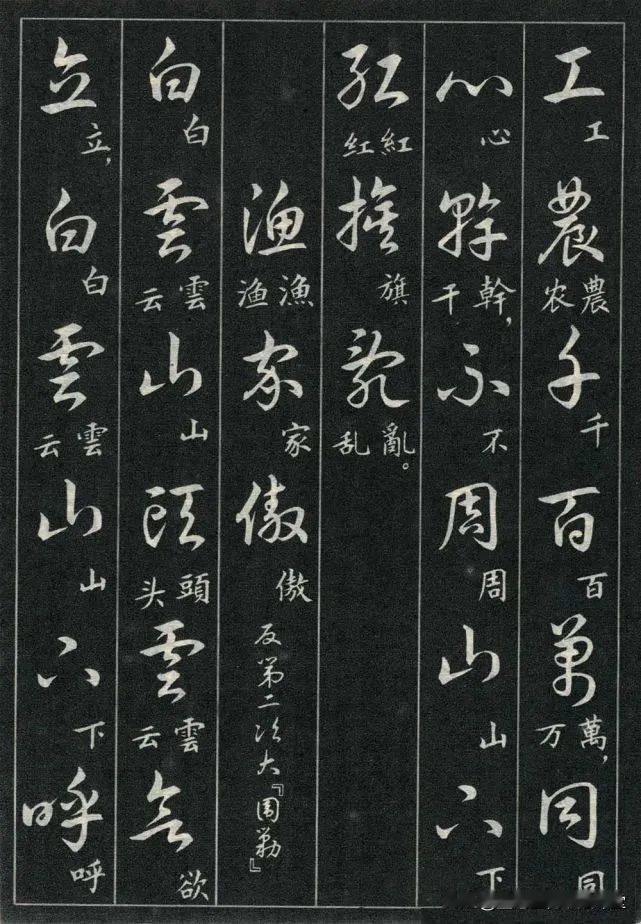 工農千百萬同
工農农千百萬,万同
心幹不周山下
心幹,干不周山下
红旗亂
紅红旗亂。乱
渔家傲
漁渔家傲
反第二次大『围勦』
白雲山頭雲欲
白雲云山頭头雲云欲
立白雲山下呼
立,白雲云山下呼